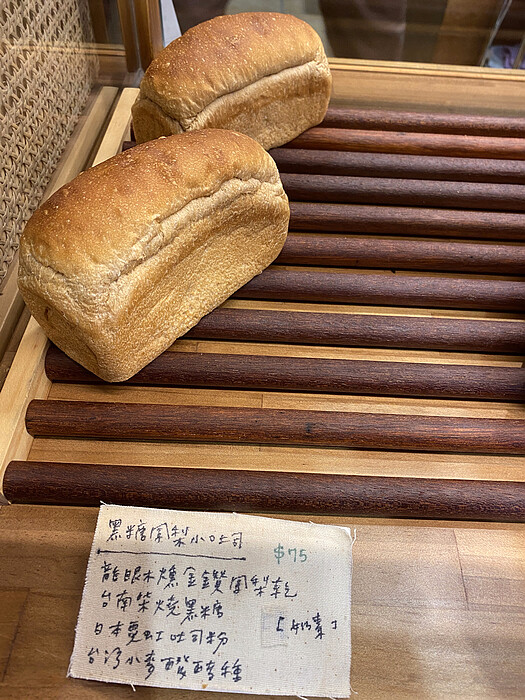 黑糖鳳梨小吐司 $75
龍眼木燻金鑽鳳梨乾
台南柴燒黑糖 [奶素]
日本栗虹吐司粉
台灣小麥酸酵種